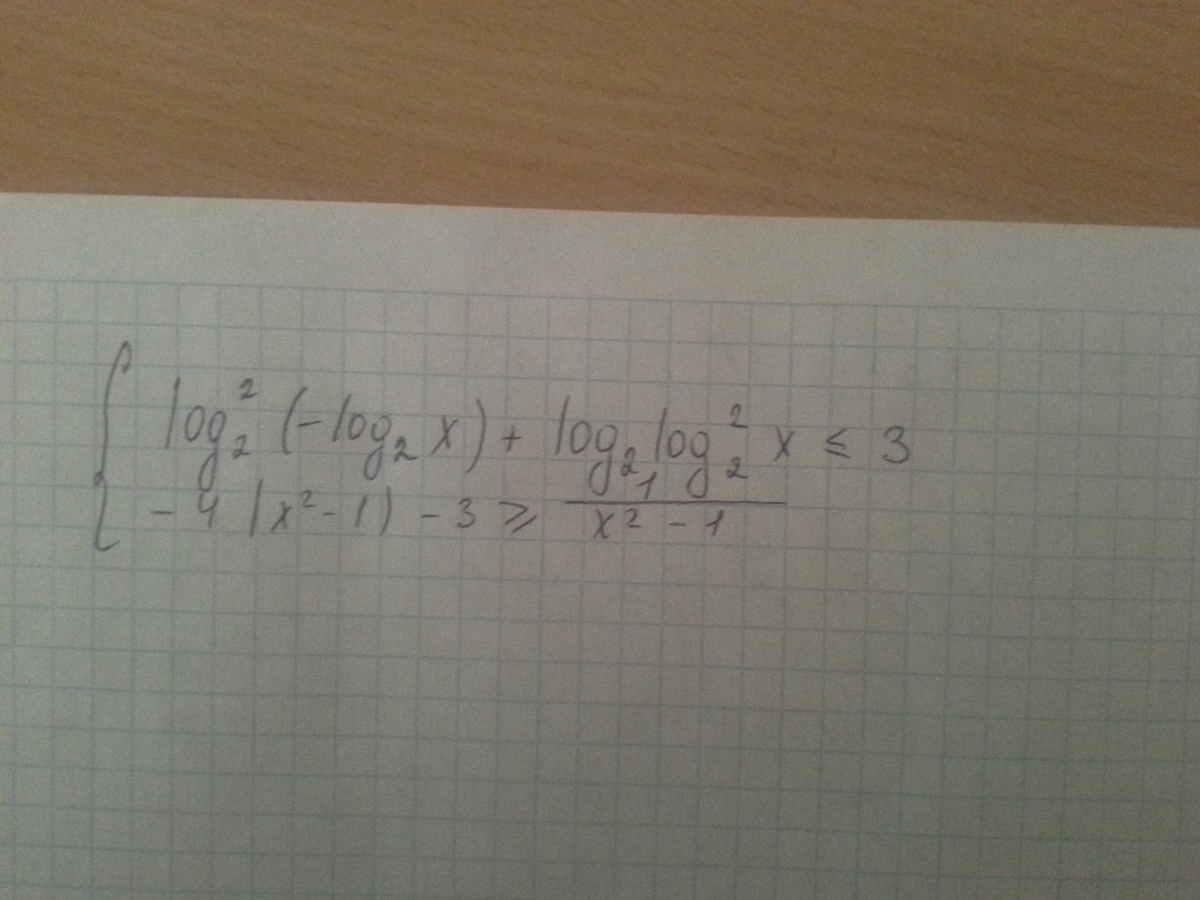 log₂² (-log₂ x) + log₂ log₂² x ≤ 3
-4 |x² - 1| - 3 ≥ 1/(x² - 1)